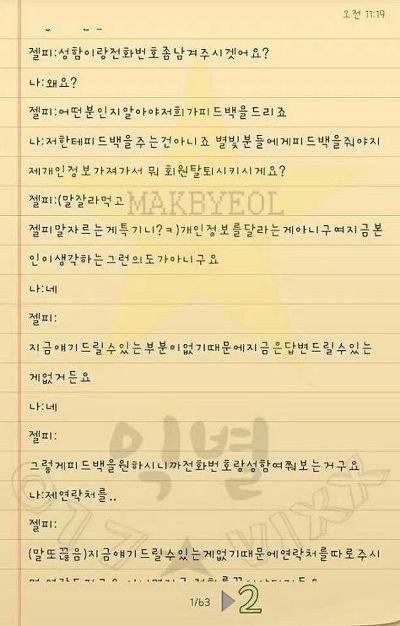 오전 11:19
젤피:성함이랑전화번호좀남겨주시겟어요?
나:왜요?
젤피:어떤분인지알아야저희가피드백을드리죠
나:저한테피드백을주는건아니죠 별빛분들에게피드백을줘야지
제개인정보가져가서 뭐 회원탈퇴시키시게요?
젤피:(말잘라먹고
MAKBYEOL
젤피말자르는게특기니?ㅋ)개인정보를달라는게아니구여지금본
인이생각하는그런의도가아니구요
나:네
젤피:
지금얘기드릴수있는부분이없기때문에지금은답변드릴수있는
게없거든요
나:네
젤피:
익별
그렇게피드백을원하시니까전화번호랑성함여쭤보는거구요
나:제연락처를..
017 ★ VIXX
젤피:
(말또끊음)지금얘기드릴수있는게없기때문에연락처를따로주시
1/63 ▶ 2